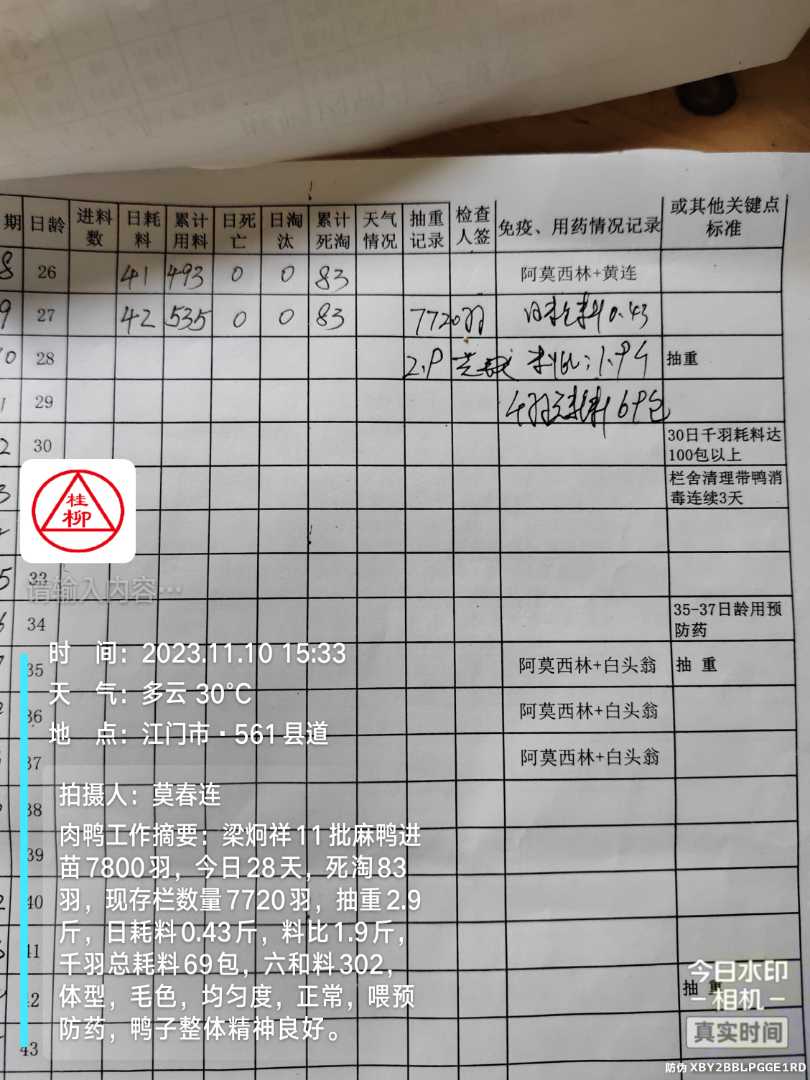 期 日龄 进料数 日耗料 累计用料 日死亡 日淘汰 累计死淘 天气情况 抽重记录 检查人签 免疫、用药情况记录 或其他关键点标准
8 26 41 493 0 0 83 阿莫西林+黄连
9 27 42 535 0 0 83 7720羽 日耗料0.43
28 2.9 料比:1.94 抽重
29 千羽耗料69包
30 30日千羽耗料达100包以上
栏舍清理带鸭消毒连续3天
桂柳
33
请输入内容…
34 35-37日龄用预防药
35 阿莫西林+白头翁 抽 重
36 阿莫西林+白头翁
37 阿莫西林+白头翁
38
39
40
41
42 抽 重
43
时 间：2023.11.10 15:33
天 气：多云 30℃
地 点：江门市·561县道
拍摄人：莫春连
肉鸭工作摘要：梁炯祥11批麻鸭进
苗7800羽，今日28天，死淘83
羽，现存栏数量7720羽，抽重2.9
斤，日耗料0.43斤，料比1.9斤，
千羽总耗料69包，六和料302，
体型，毛色，均匀度，正常，喂预
防药，鸭子整体精神良好。
今日水印
相机
真实时间
防伪 XBY2BBLPGGE1RD